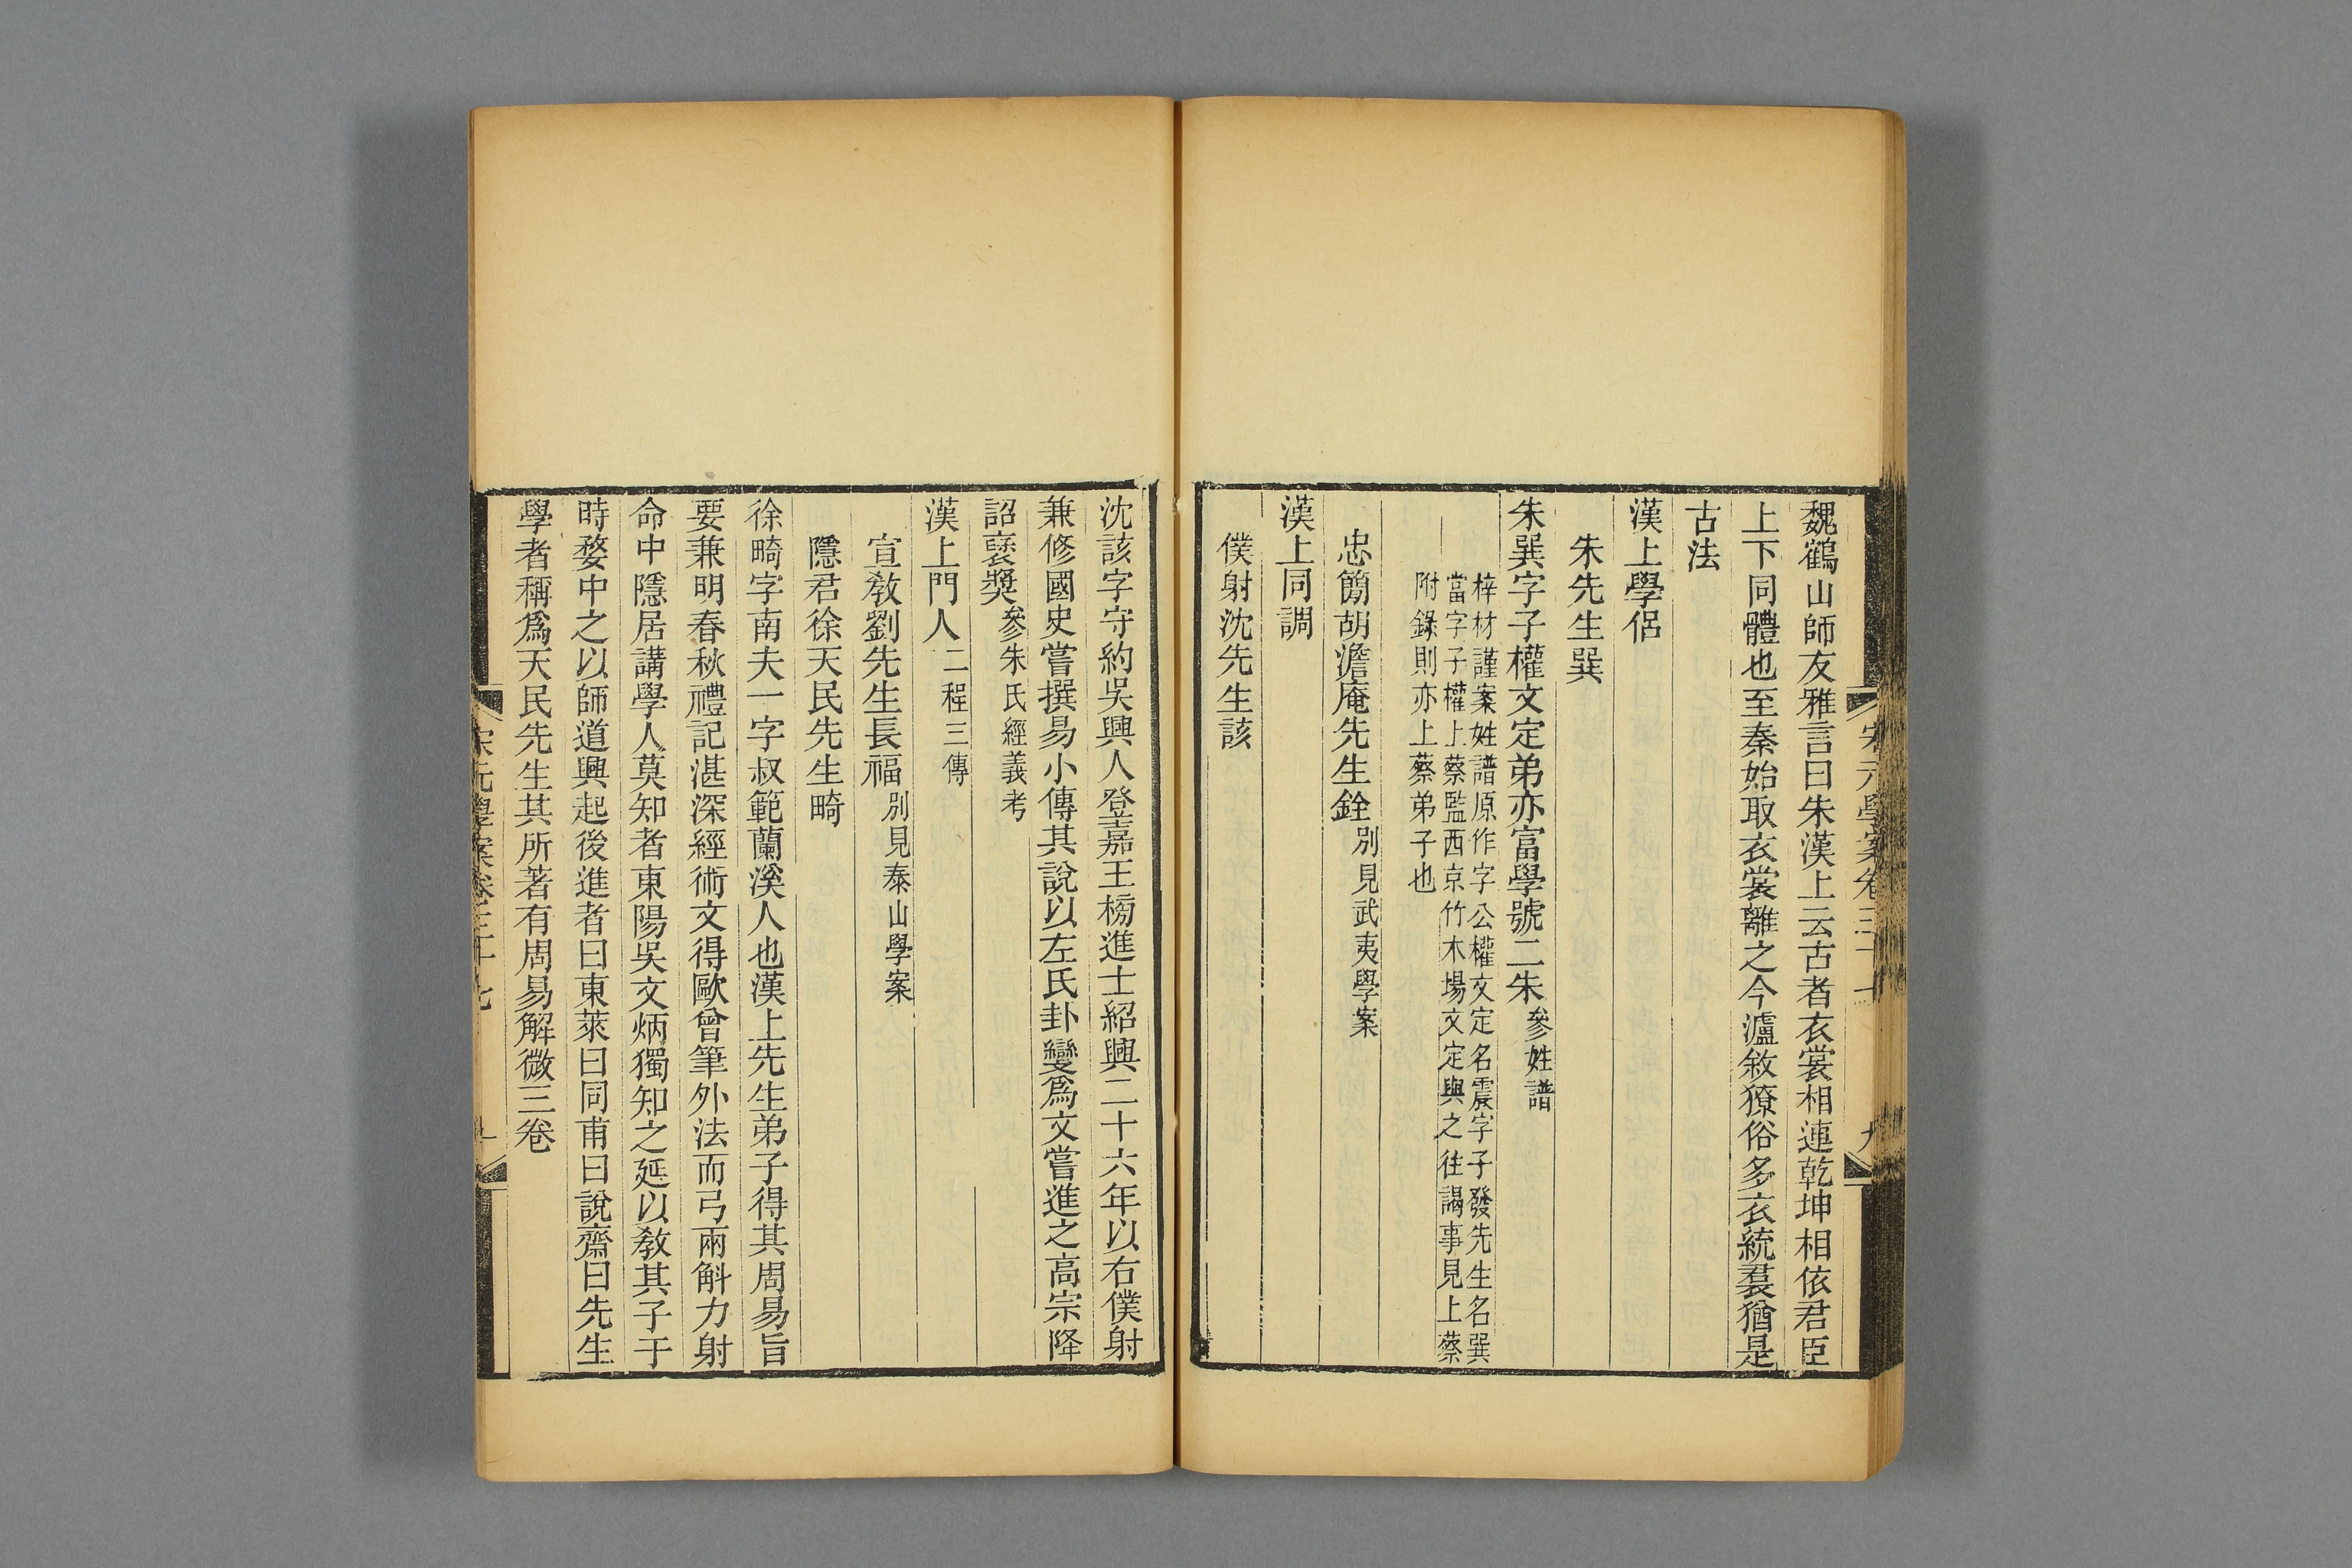 魏鶴山師友雅言曰朱漢上云古者衣裳相連乾坤相依君臣
上下同體也至秦始取衣裳離之今瀘敘獠俗多衣統裙猶是
古法
漢上學侶
朱先生巽
朱巽字子權文定弟亦富學號二朱參姓譜
梓材謹案姓譜原作字公權文定名震字子發先生名巽
當字子權上蔡監西京竹木場文定與之往謁事見上蔡
附錄則亦上蔡弟子也
忠簡胡澹庵先生銓別見武夷學案
漢上同調
僕射沈先生該
宋元學案卷三十七
九
沈該字守約吳興人登嘉王榜進士紹興二十六年以右僕射
兼修國史嘗撰易小傳其說以左氏卦變爲文嘗進之高宗降
詔褒獎參朱氏經義考
漢上門人二程三傳
宣敎劉先生長福別見泰山學案
隱君徐天民先生畸
徐畸字南夫一字叔範蘭溪人也漢上先生弟子得其周易旨
要兼明春秋禮記湛深經術文得歐曾筆外法而弓兩斛力射
命中隱居講學人莫知者東陽吳文炳獨知之延以敎其子于
時婺中之以師道興起後進者曰東萊曰同甫曰說齋曰先生
學者稱爲天民先生其所著有周易解微三卷
宋元學案卷三十七